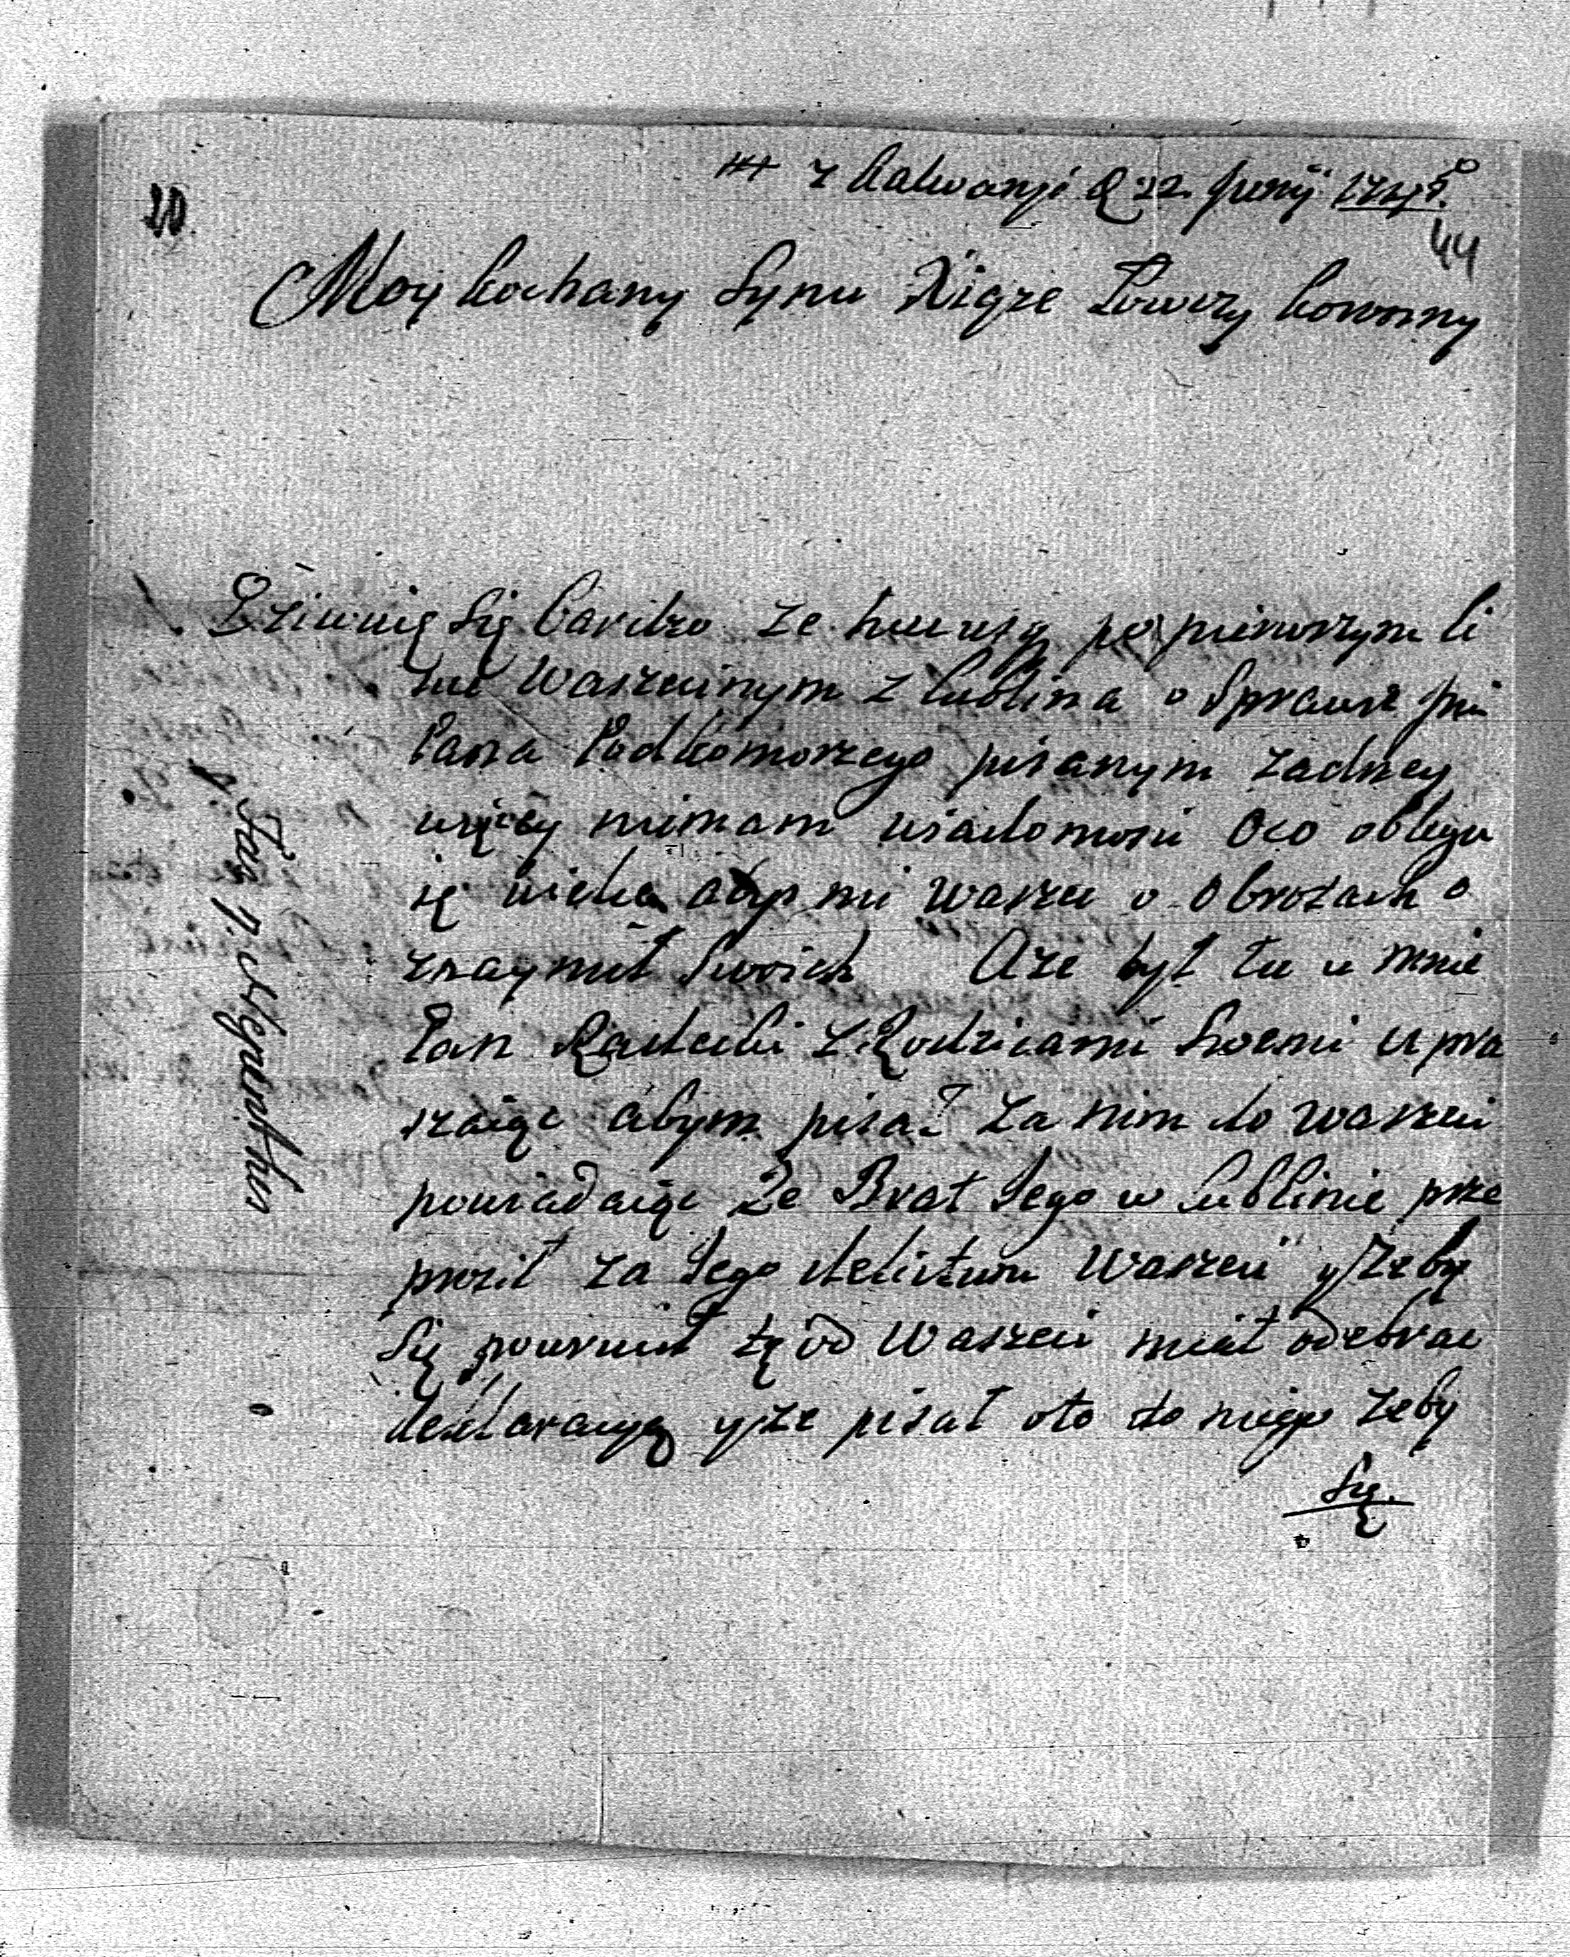 z Kalwaryi d 22. Junij
20.
44
Moy kochany Synu Xiąże Łowczy koronny
Dziwuię Się bardzo ze huczusią po pierwszym li
scie Waszecinym z Lublina o Sprawie
Pana Podkomorzego pisanym zadney
więcey niemam wiadomosci Oco obligu
ię wielce abyś mi Waszeć o obrotach o
znaymił Swoich Aże był tu u mnie
Pan Radecki z Rodzicami Swemi upra
szaiąc abym pisał za nim do Waszeci
powiadaiąc Ze Brat Jego w Lublinie prze
prosił za Jego delictum Waszeci y Zeby
Się powrucił tę od Waszeci miał odebrac
deklaracyą yże pisał oto do niego zeby
Się.